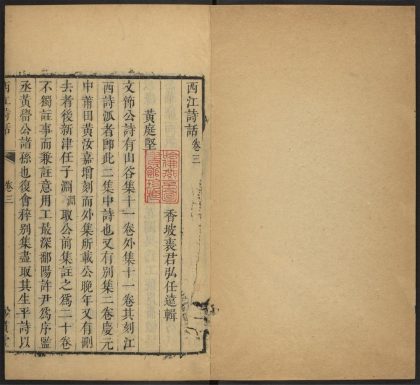 西江詩話卷三
香坡裘君弘任遠輯
黃庭堅
文節公詩有山谷集十一卷外集十一卷其刻江
西詩派者卽此二集中詩也又有別集二卷慶元
中莆田黃汝嘉增刻而外集所載公晚年又有刪
去者後新津任子淵淵取公前集註之爲二十卷
不獨註事而兼註意用工最深鄱陽許尹爲序監
丞黃𥅆公諸孫也復會稡別集盡取其生平詩以
西江詩話 卷三